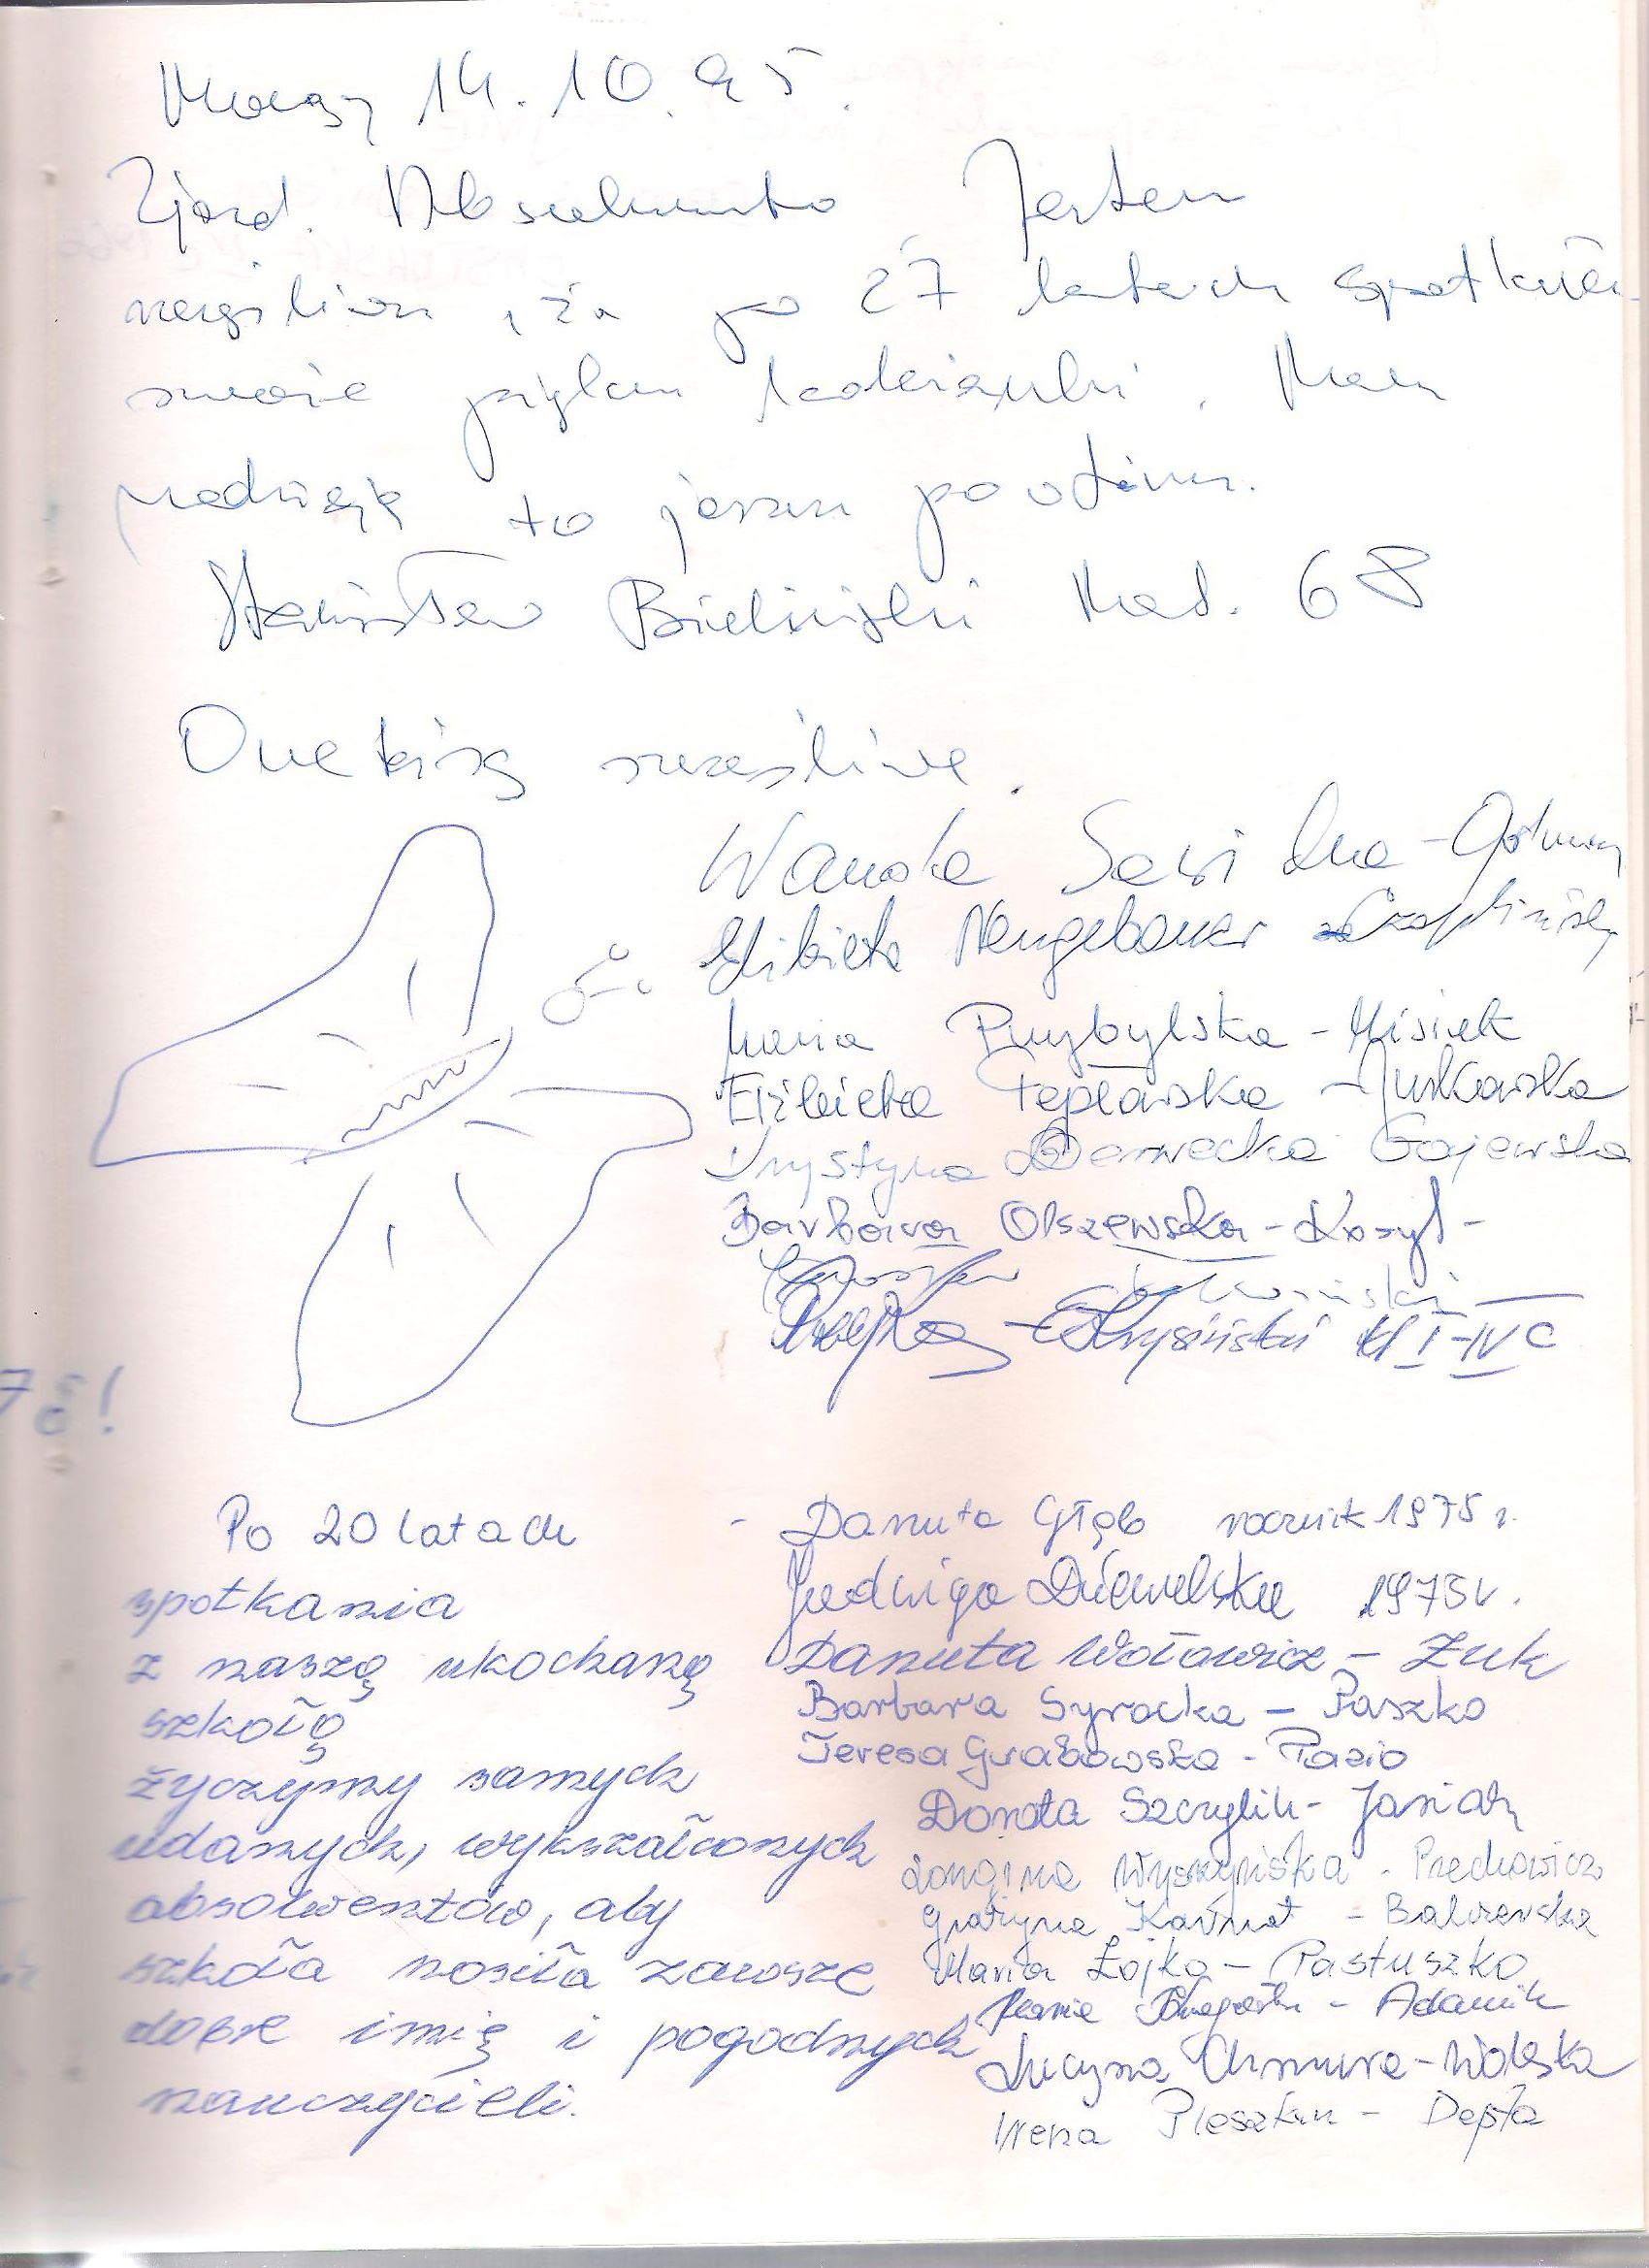 Mrozy 14.10.95.
Zjazd. Absolwentów Jestem
szczęśliwy, że po 27 latach spotkałem
swoje koleżanki. Mam
nadzieję to jeszcze powtórzę.
Stanisław Bieliński Mat. 68
One też są szczęśliwe.
Wanda
Elżbieta Neugebauer Czaplińska
Maria Przybylska - Misiek
Elżbieta Tepłowska - Jurkowska
Krystyna Derwecka Gajewska
Barbara Olszewska - Kosyl -
kl I-IV C
78!
Po 20 latach
spotkania
z naszą ukochaną
szkołą
życzymy samych
udanych, wykształconych
absolwentów, aby
szkoła nosiła zawsze
dobre imię i pogodnych
nauczycieli.
- Danuta Głąb rocznik 1975 r.
Jadwiga 1975 r.
Danuta Wołowicz - Żuk
Barbara Syrocka - Paszko
Teresa Grabowska - Pazio
Dorota Szczyglik - Jasiak
Longina Wyszyńska - Piechowicz
Grażyna Karnat - Balcerska
Maria Łojko - Pastuszko
- Adamik
Lucyna Chmura - Wolska
Irena Pleszkun - Depta